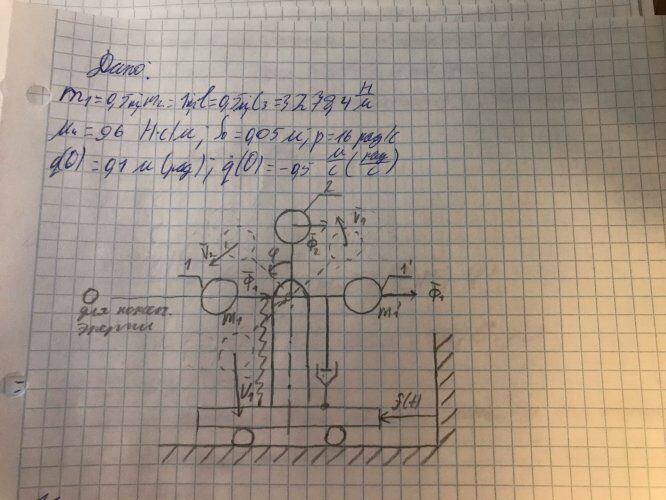 Дано:
m₁ = 0,5 кг; m₂ = 1 кг; l = 0,5 м; c₃ = 3278,4 Н/м
μ₄ = 96 Н·с/м; h = 0,05 м; p = 16 рад/с
q(0) = 0,1 м (рад); q̇(0) = -0,5 м/с (рад/с)
2
V̄₁
V̄₂
Φ̄₂
φ
1
Φ̄₁
1'
0
для потенц.
энергии
m₁
m₁'
Φ̄₁
V̄₁
S(t)